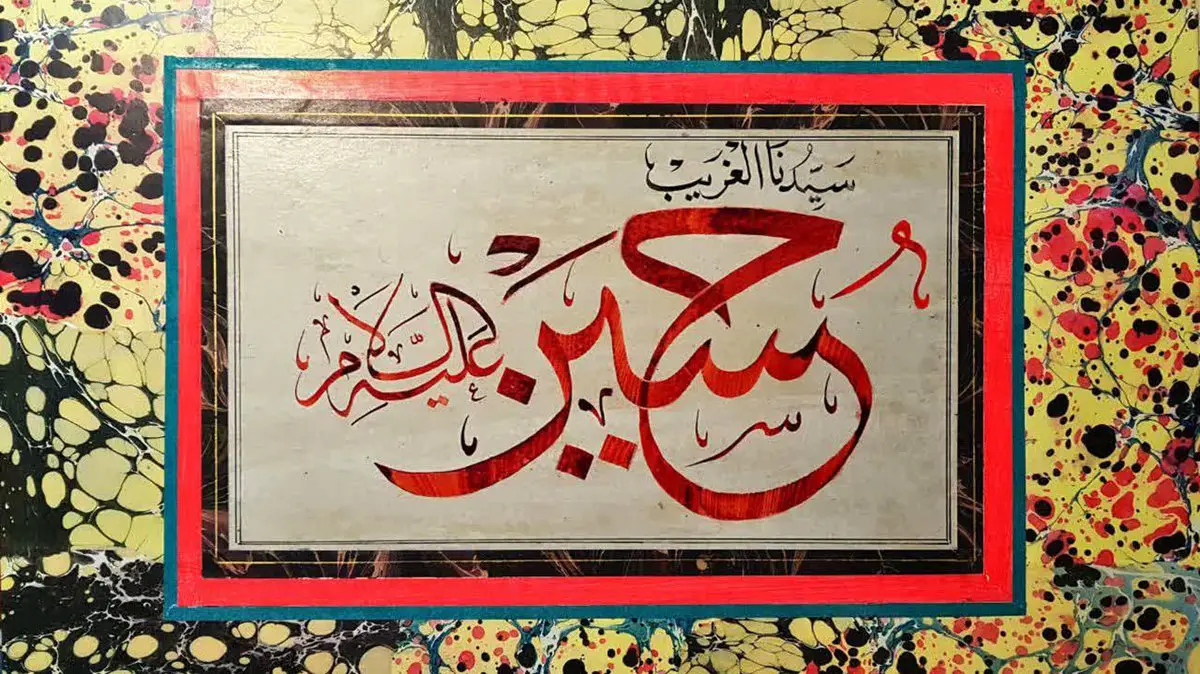 سَيِّدُنَا الْغَرِيْبْ
حُسَيْن عَلَيْهِ السَّلَامْ